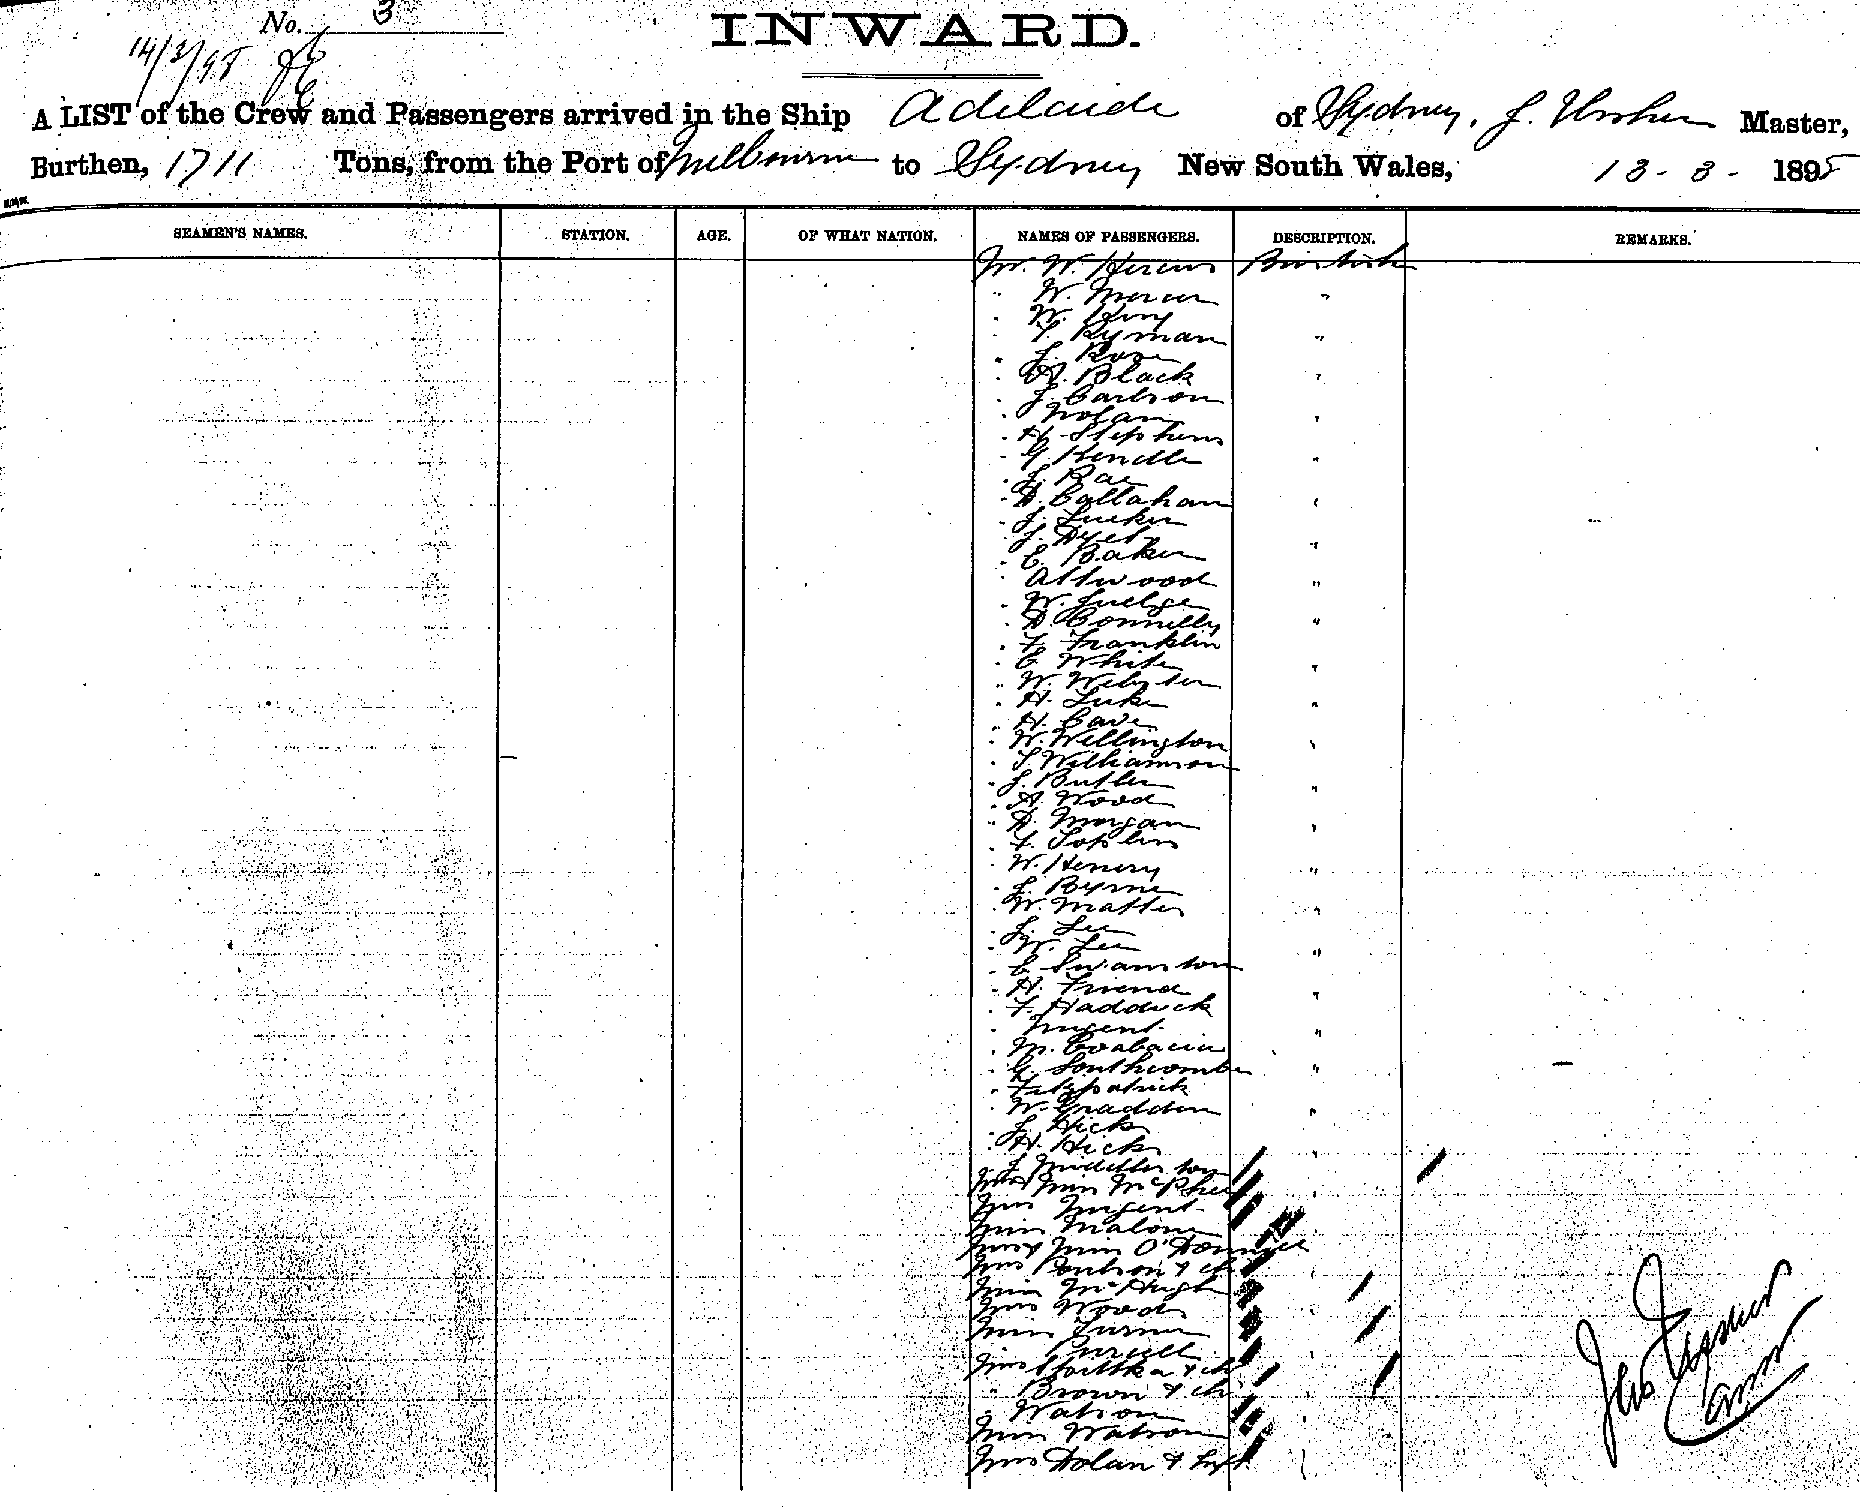 No. 3
INWARD.
14/3/95
A LIST of the Crew and Passengers arrived in the Ship Adelaide of Sydney, J. Master,
Burthen, 1711 Tons, from the Port of Melbourne to Sydney New South Wales, 13-3-1895
SEAMEN'S NAMES. STATION. AGE. OF WHAT NATION. NAMES OF PASSENGERS. DESCRIPTION. REMARKS.
Mr. W. British
" W. Mercer "
" W. King
" T. Ryman "
" J. Rose
" A. Black "
" J. Carlson
" Nolan "
" H. Stephens
" G. Kendle "
" J. Rae
" D. Callahan "
" J. Tucker
" J. Dyer
" C. Baker "
" Attwood "
" W.
" D. Connelly "
" F. Franklin
" C. White "
" W. Webster
" H. Luke "
" H. Cave
" W. Wellington "
" T. Williamson
" J. Butler "
" A. Wood
" D. Morgan "
" F. Toplin
" W. Henery "
" J. Byrne
" W. Matter "
" J. Lee
" W. Lee "
" C. Swanston
" H. Friend "
" F. Haddock
" Nugent "
" M.
" G. Southcombe "
" Fitzpatrick
" W. Gradden "
" J. Hick
" H. Hick
" J. Middleton "
Mrs & Miss McPhee
Mrs Nugent
Miss Malone
Mrs & Miss O'Donnell
Mrs Poulson & ch
Miss McHugh
Mrs Wood
Miss Turner
" Purcell
Mrs & ch
" Brown & ch
" Watson
Miss Watson
Mrs Dolan &